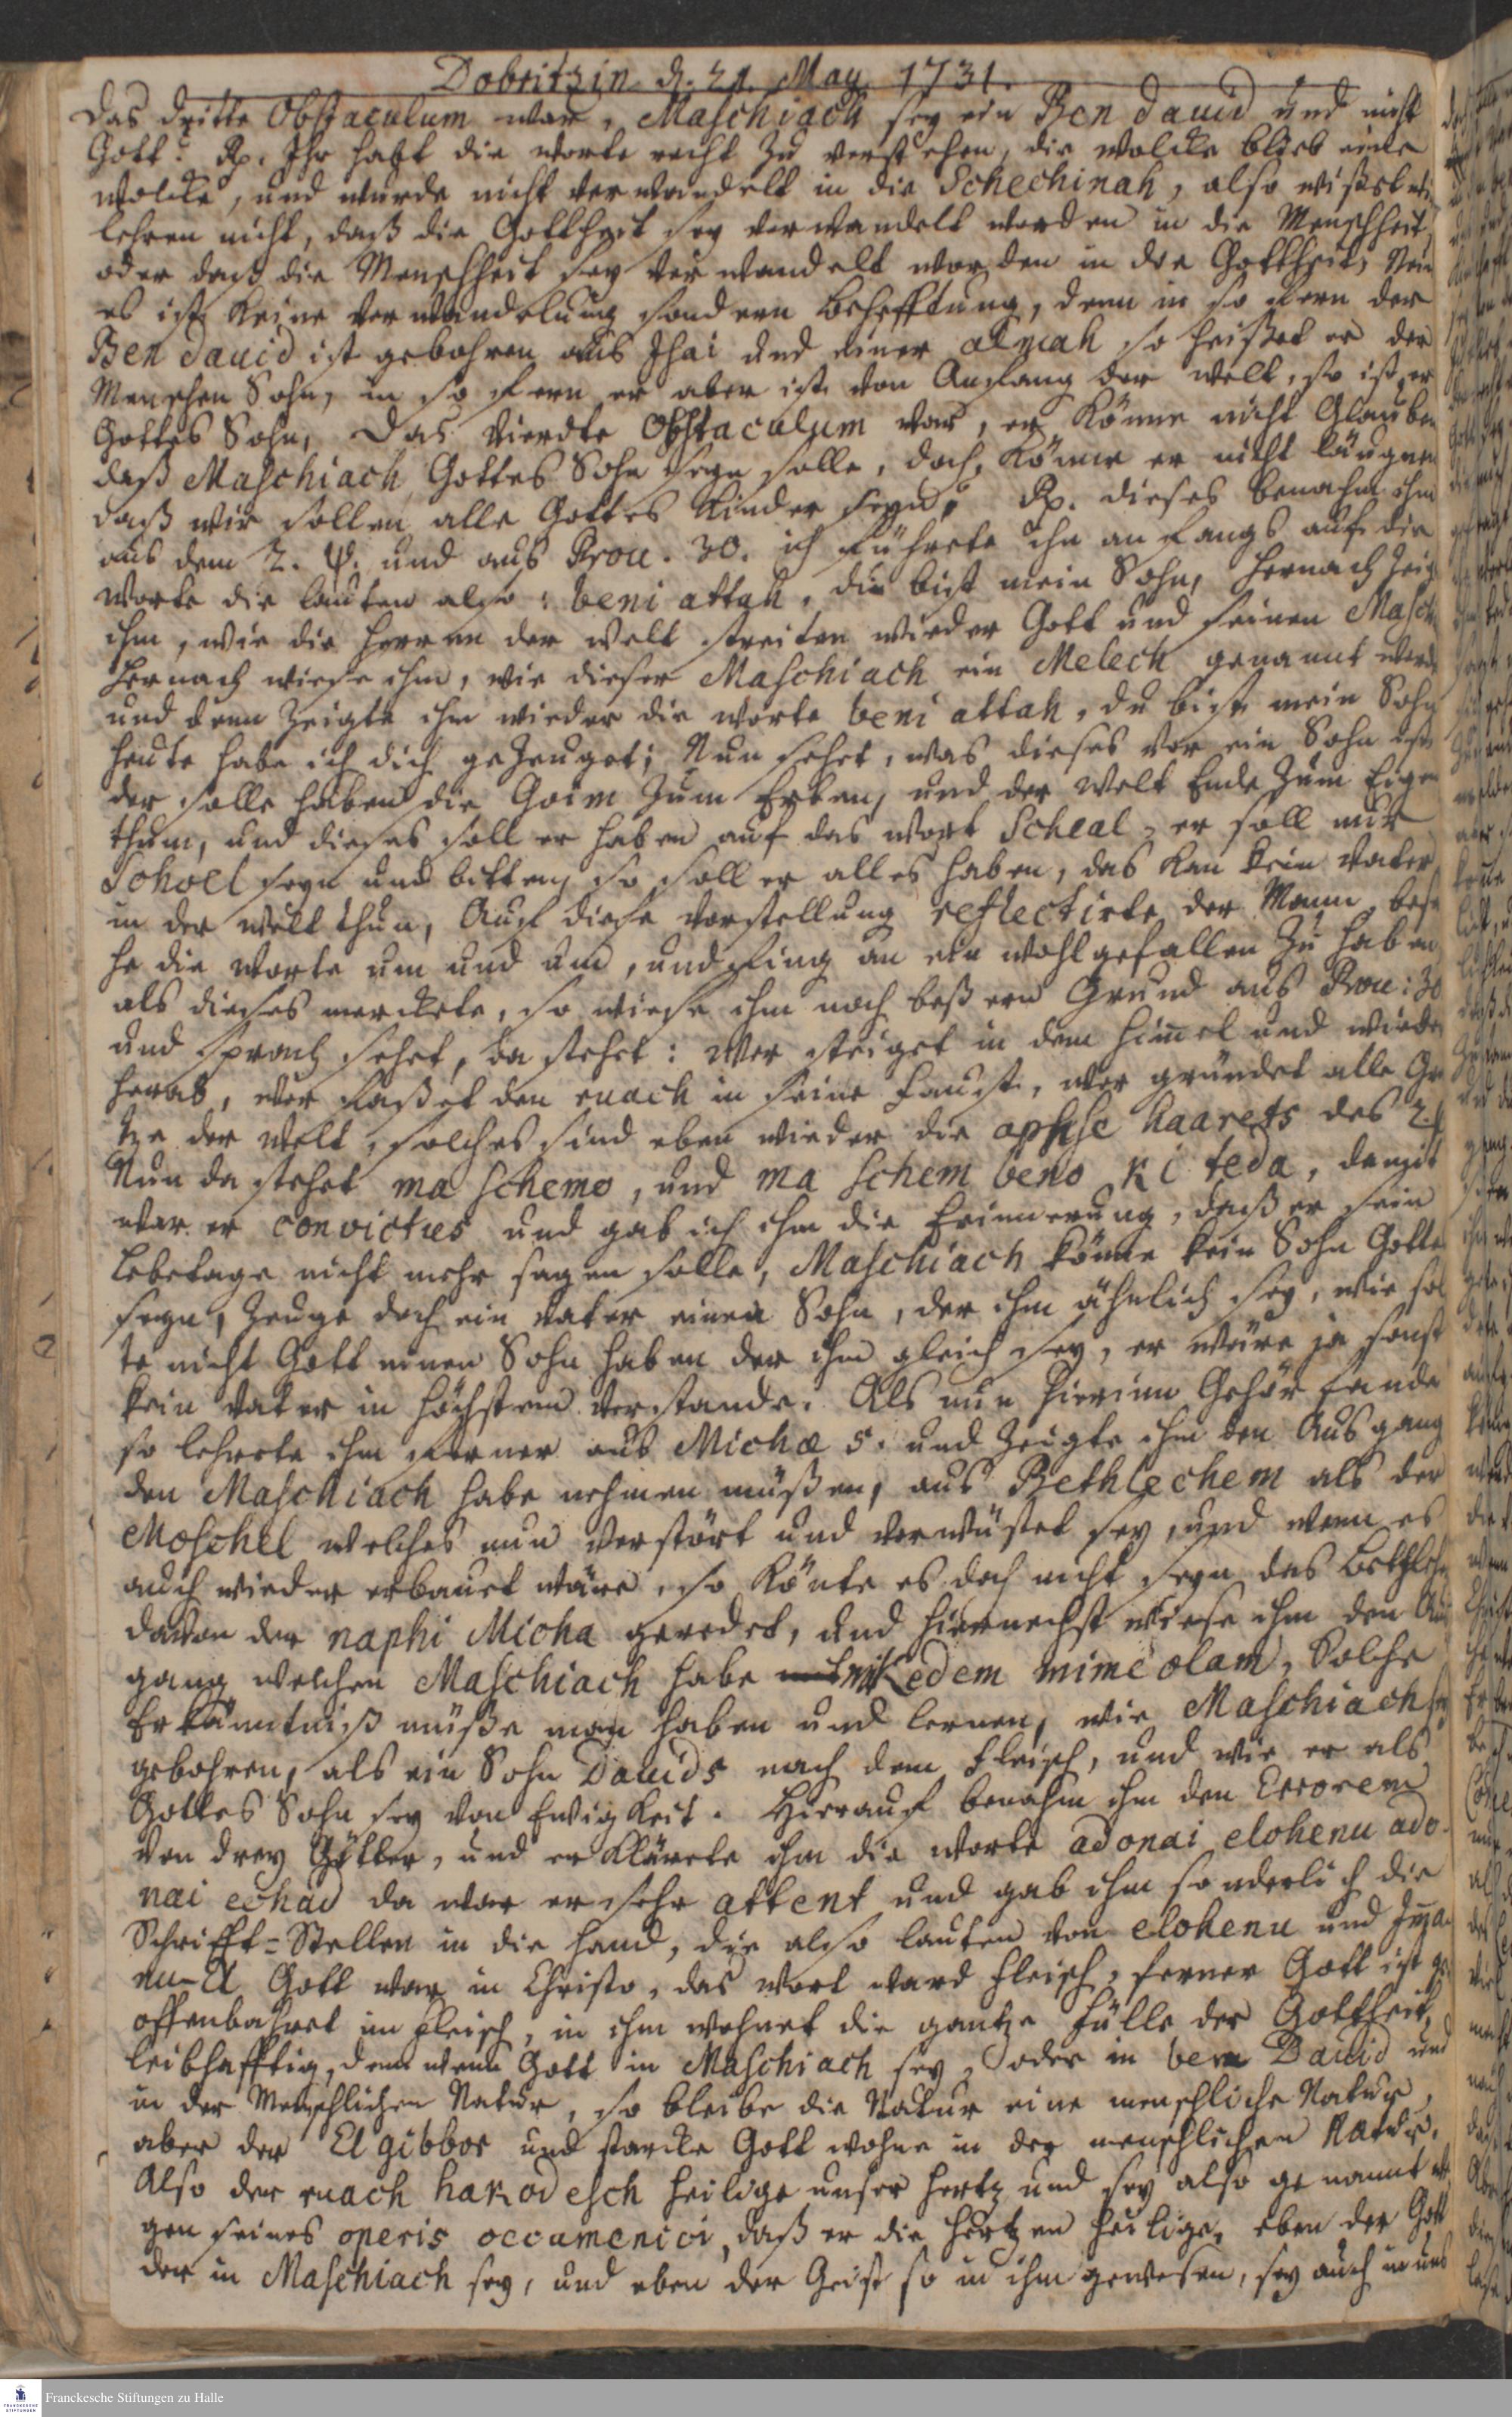 Dobritzin d. 21. May 1731.
Das dritte Obstaculum war, Maschiach sey ein Ben David und nicht
Gott. Rp. Ihr habt die worte recht zu verstehen, die wolcke blieb eine
wolcke, und wurde nicht verwandelt in die Schechinah, also wißet wir
lehren nicht, daß die Gottheit sey verwandelt worden in die Menschheit,
oder daß die Menschheit sey verwandelt worden in die Gottheit, Nein
es ist keine verwandelung sondern behefftung, denn in so fern der
Ben david ist gebohren aus Ihai und einer almah so heißet er der
Menschen Sohn, in so fern er aber ist von Anfang der welt, so ist er
Gottes Sohn, Das Vierdte Obstaculum war, er könne nicht Glauben
daß Maschiach Gottes Sohn seyn solle, doch könne er nicht läugnen
daß wir sollen alle Gottes Kinder seyn, Rp. dieses benahm ihm
aus dem 2. ψ. und aus Prou. 30. ich führete ihn anfangs auf die
worte die lauten also: beni attah, du bist mein Sohn, hernach zeig
ihm, wie die herren der welt streiten wieder Gott und seinen Masch
hernach wiese ihm, wie dieser Maschiach ein Melech genannt werde
und denn zeigte ihm wieder die worte beni attah, du bist mein Sohn
heute habe ich dich gezeuget; Nun sehet, was dieses vor ein Sohn ist
der solle haben die Goim zum Erben, und der welt Ende zum Eigen
thum, und dieses soll er haben auf das wort Scheal, er soll nur
Schoel seyn und bitten, so soll er alles haben, das kan kein vater
in der welt thun, Auf diese vorstellung reflectirte der Mann, bese
he die worte um und um, und fing an ein wohlgefallen zu haben
als dieses merckete, so wiese ihm noch beßern Grund aus Prou: 30
und sprach sehet, da stehet: wer steiget in dem himel und wieder
herab, wer faßet den ruach in seine faust, wer gründet alle Gr
tze der welt, solches sind eben wieder die aphse haarets des 2. ψ
Nun da stehet ma schemo, und ma schem beno ki teda, damit
war er convictus und gab ich ihm die Erinnerung, daß er sein
lebetage nicht mehr sagen solle, Maschiach könne kein Sohn Gottes
seyn, zeuge doch ein vater einen Sohn, der ihm ähnlich sey, wie sol
te nicht Gott einen Sohn haben der ihm gleich sey, er wäre ja sonst
kein vater in höchstem verstande. Als nun hierinn Gehör fande
so lehrete ihm ferner aus Michæ 5. und zeigte ihm den Ausgang
den Maschiach habe nehmen müßen, aus Bethlechem als der
Moschel welches nun verstört und verwüstet sey, und wenn es
auch wieder erbauet wäre, so könte es doch nicht seyn das Bethlehe
davon der naphi Micha geredet, und hiernechst wiese ihm den Aus
gang welchen Maschiach habe mikedem mime olam, Solche
Erkänntniß müße man haben und lernen, wie Maschiach sey
gebohren, als ein Sohn Davids nach dem fleisch, und wie er als
Gottes Sohn sey von Ewigkeit. Hierauf benahm ihm den Errorem
von drey Götter, und erklärete ihm die worte adonai elohenu ado-
nai echad da war er sehr attent und gab ihm sonderlich die
Schrifft-Stellen in die hand, die also lauten von elohenu und Ima
nu-El Gott war in Christo, das wort ward fleisch, ferner Gott ist ge
offenbahret im fleisch, in ihm wohnet die gantze fülle der Gottheit,
leibhafftig, denn wenn Gott in Maschiach sey, oder in ben David und
in der Menschlichen Natur, so bleibe die Natur eine menschliche Natur,
aber der El gibbor und starcke Gott wohne in der menschlichen Natur.
Also der ruach hakodesch heilige unser hertz und sey also genannt we
gen seines operis oecumenici, daß er die hertzen heilige, eben der Gott
der in Maschiach sey, und eben der Geist so in ihm gewesen, sey auch in uns
Franckesche Stiftungen zu Halle